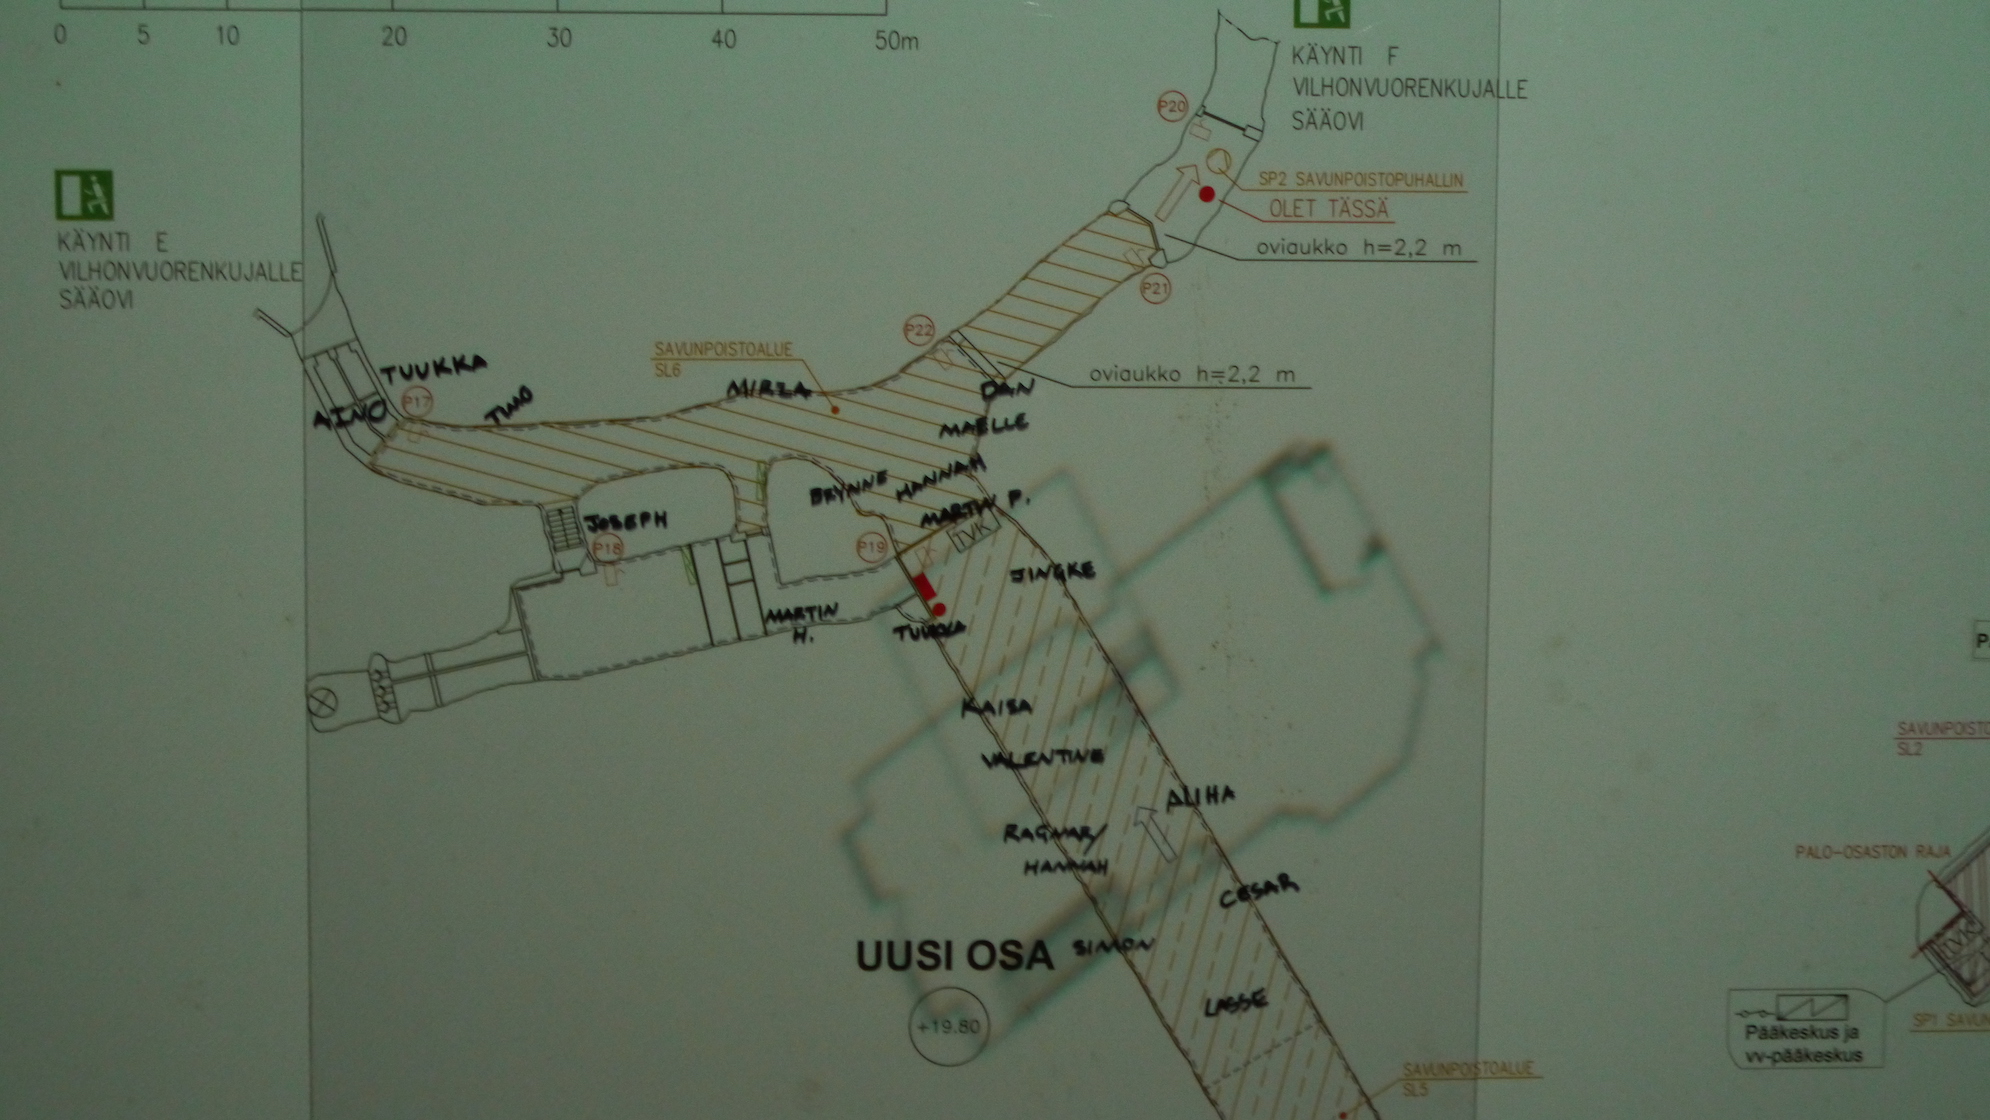 0 5 10 20 30 40 50m
KÄYNTI F
VILHONVUORENKUJALLE
SÄÄOVI
P20
SP2 SAVUNPOISTOPUHALLIN
OLET TÄSSÄ
oviaukko h=2,2 m
P21
KÄYNTI E
VILHONVUORENKUJALLE
SÄÄOVI
P22
SAVUNPOISTOALUE
SL6
oviaukko h=2,2 m
TUUKKA
P17
AINO
TIMO
MIRZA
DAN
MAELLE
HANNAH
BRYNNE
MARTIN P.
TVK
JOSEPH
P18
P19
JINGKE
MARTIN
H.
TUUKKA
KAISA
VALENTINE
ALIHA
RAGNAR/
HANNAH
CESAR
UUSI OSA
SIMON
+19.80
LASSE
SAVUNPOISTOALUE
SL5
SAVUNPOISTO
SL2
PALO-OSASTON RAJA
TVK
Pääkeskus ja
vv-pääkeskus
SP1 SAVUN